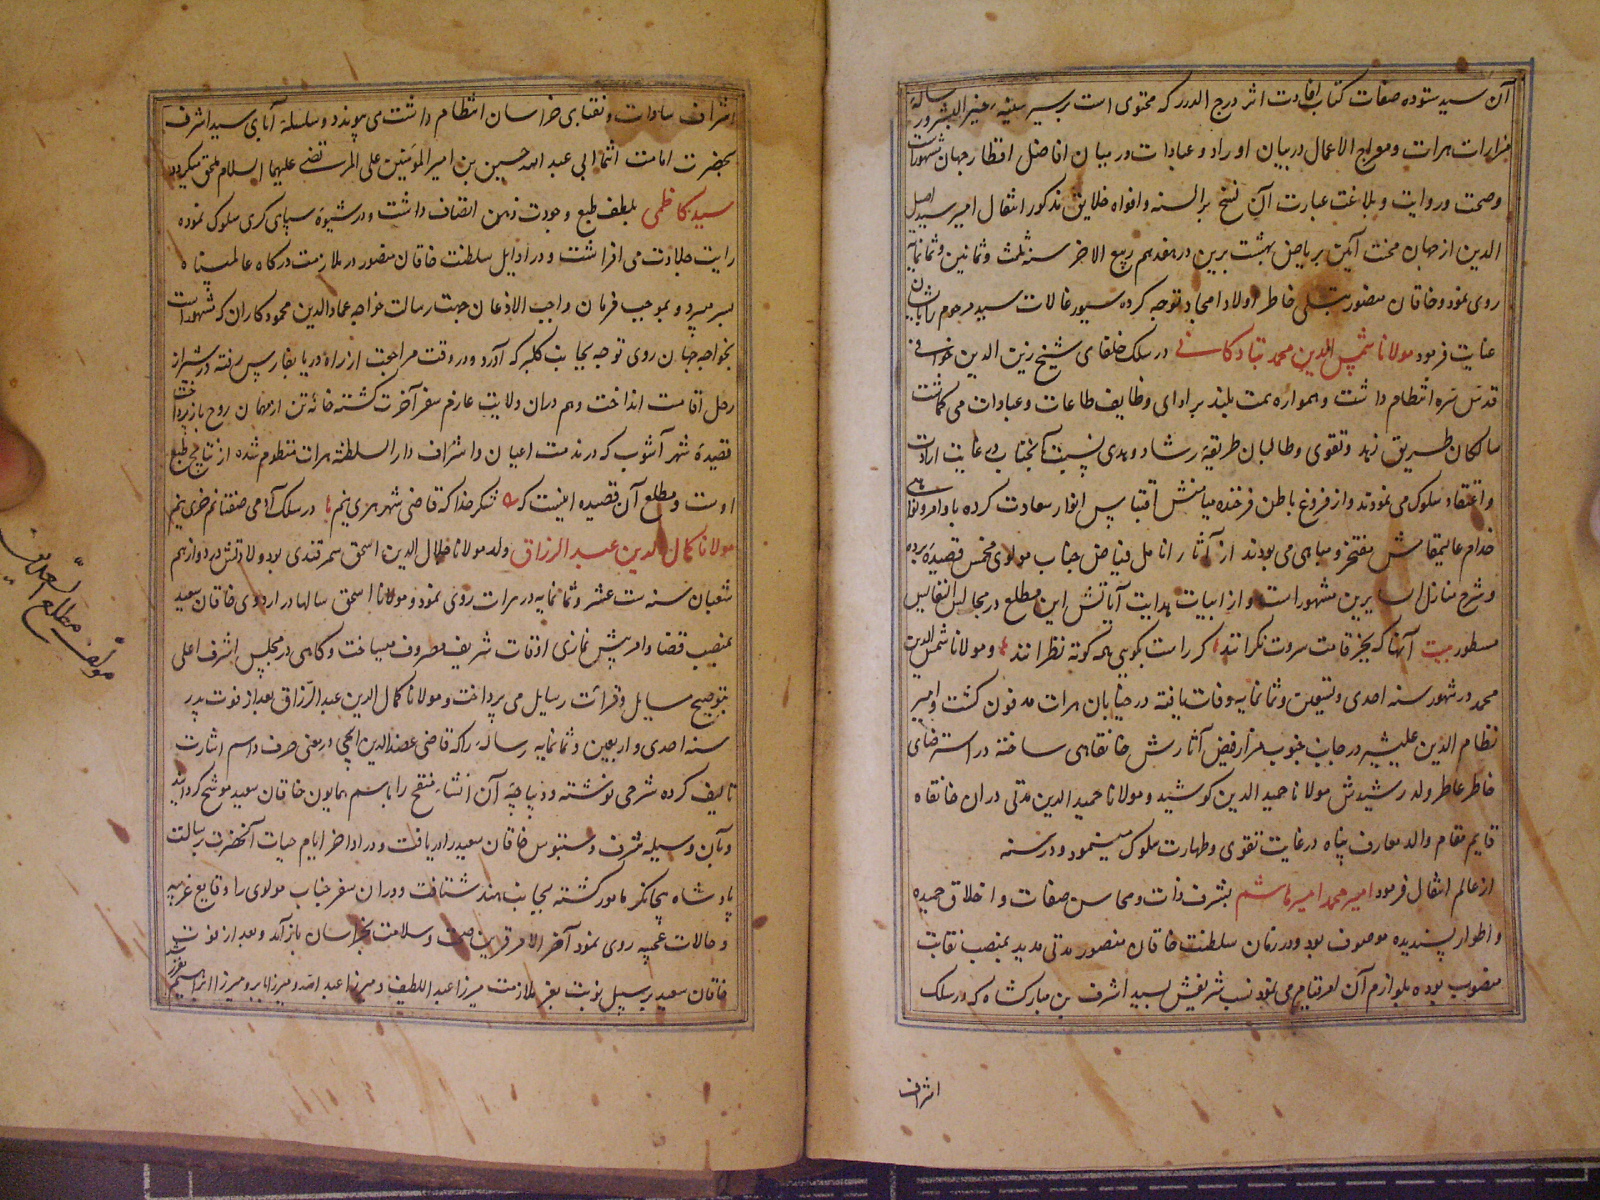 آن سید ستوده صفات کتاب افادت اثر درج الدرر که محتوی است بر سیر سنیه خیر البشر و رسالهٔ
مزارات هرات و معراج الاعمال در بیان اوراد و عبادات و در میان افاضل اقطار جهان مشهور است
وصحت و روایت و بلاغت عبارت آن نسخ بر السنه و افواه خلایق مذکور انتقال امیر سید اصیل
الدین از جهان محنت آیین بریاض بهشت برین در هفدهم ربیع الاخر سنه ثلث و ثمانین و ثمانمایه
روی نمود و خاقان منصور بتسلی خاطر اولاد امجاد توجه کرده سیورغالات سید مرحوم را بایشان
عنایت فرمود مولانا شمس الدین محمد تبادکانی در سلک خلفای شیخ زین الدین خوافی
قدس سره انتظام داشت و همواره همت بلند بر ادای وظایف طاعات و عبادات می کماشت
سالکان طریق زهد و تقوی و طالبان طریقهٔ رشاد و هدی نسبت بآنجناب در غایت ارادت
و اعتقاد سلوک می نمودند و از فروغ باطن فرخنده میامنش اقتباس انوار سعادت کرده باوامر و نواهی
خدام عالیمقامش مفتخر و مباهی می بودند از آثار انامل فیاض جناب مولوی مخمس قصیده برده
و شرح منازل السایرین مشهور است و از ابیات هدایت آیاتش این مطلع در مجالس النفایس
مسطور بیت آنها که بجز قامت سروت نکرانند کر راست بکویی همه کوته نظرانند و مولانا شمس الدین
محمد در شهور سنه احدی و تسعین و ثمانمایه وفات یافته در خیابان هرات مدفون کشت و امیر
نظام الدین علیشیر در جانب جنوب مزار فیض آثارش خانقاهی ساخته در استرضای
خاطر عاطر ولد رشیدش مولانا حمید الدین کوشید و مولانا حمید الدین مدتی دران خانقاه
قایم مقام والد معارف پناه در غایت تقوی و طهارت سلوک مینمود و در سنه
از عالم انتقال فرمود امیر محمد امیر هاشم بشرف ذات و محاسن صفات و اخلاق حمیده
و اطوار پسندیده موصوف بود و در زمان سلطنت خاقان منصور مدتی مدید بمنصب نقابت
منصوب بوده بلوازم آن امر قیام می نمود نسب شریفش بسید اشرف بن مبارکشاه که در سلک
اشراف
اشراف سادات و نقبای خراسان انتظام داشت می پیوندد و سلسلهٔ آبای سید اشرف
بحضرت امامت انتما ابی عبد الله حسین بن امیر المومنین علی المرتضی علیهما السلام ملحق میکردد
سید کاظمی بلطف طبع و جودت ذهن اتصاف داشت و در شیوهٔ سپاهی کری سلوک نموده
رایت جلادت می افراشت و در اوایل سلطنت خاقان منصور در ملازمت درکاه عالم پناه
بسر میبرد و بموجب فرمان واجب الاذعان جهت رسالت خواجه عماد الدین محمود کاوان که مشهور است
بخواجه جهان روی توجه بجانب کلبرکه آورد و در وقت مراجعت از راه دریا بفارس رفته در شیراز
رحل اقامت انداخت و هم دران ولایت عازم سفر آخرت کشته خانهٔ تن از مهمان روح بازپرداخت
قصیدهٔ شهر آشوب که در مذمت اعیان و اشراف دار السلطنه هرات منظوم شده از نتایج طبع
اوست و مطلع آن قصیده اینست که شکر خدا که قاضی شهر هری نیم در سلک آدمی صفتانم خری نیم
مولانا کمال الدین عبد الرزاق ولد مولانا جلال الدین اسحق سمرقندی بود ولادتش در دوازدهم
شعبان سنه ست عشر و ثمانمایه در هرات روی نمود و مولانا اسحق سالها در اردوی خاقان سعید
بمنصب قضا و امر پیش نمازی اوقات شریف مصروف میساخت و کاهی در مجلس اشرف اعلی
بتوضیح مسایل و قرائت رسایل می پرداخت و مولانا کمال الدین عبد الرزاق بعد از فوت پدر
سنه احدی و اربعین و ثمانمایه رسالهٔ را که قاضی عضد الدین ایجی در معنی حرف و اسم اشارت
تالیف کرده شرحی نوشته و دیباچهٔ آن انشاء منقح را باسم همایون خاقان سعید موشح کردانید
و بآن وسیله شرف دستبوس خاقان سعید را دریافت و در اواخر ایام حیات آنحضرت برسالت
پادشاه بیجانکر مامور کشته بجانب هند شتافت و دران سفر جناب مولوی را وقایع غریبه
و حالات عجیبه روی نمود آخر الامر قرین صحت و سلامت بخراسان بازآمد و بعد از فوت
خاقان سعید بر سبیل نوبت بعز ملازمت میرزا عبد اللطیف و میرزا عبد الله و میرزا بابر و میرزا ابراهیم مقرر شد
مولف مطلع السعدین